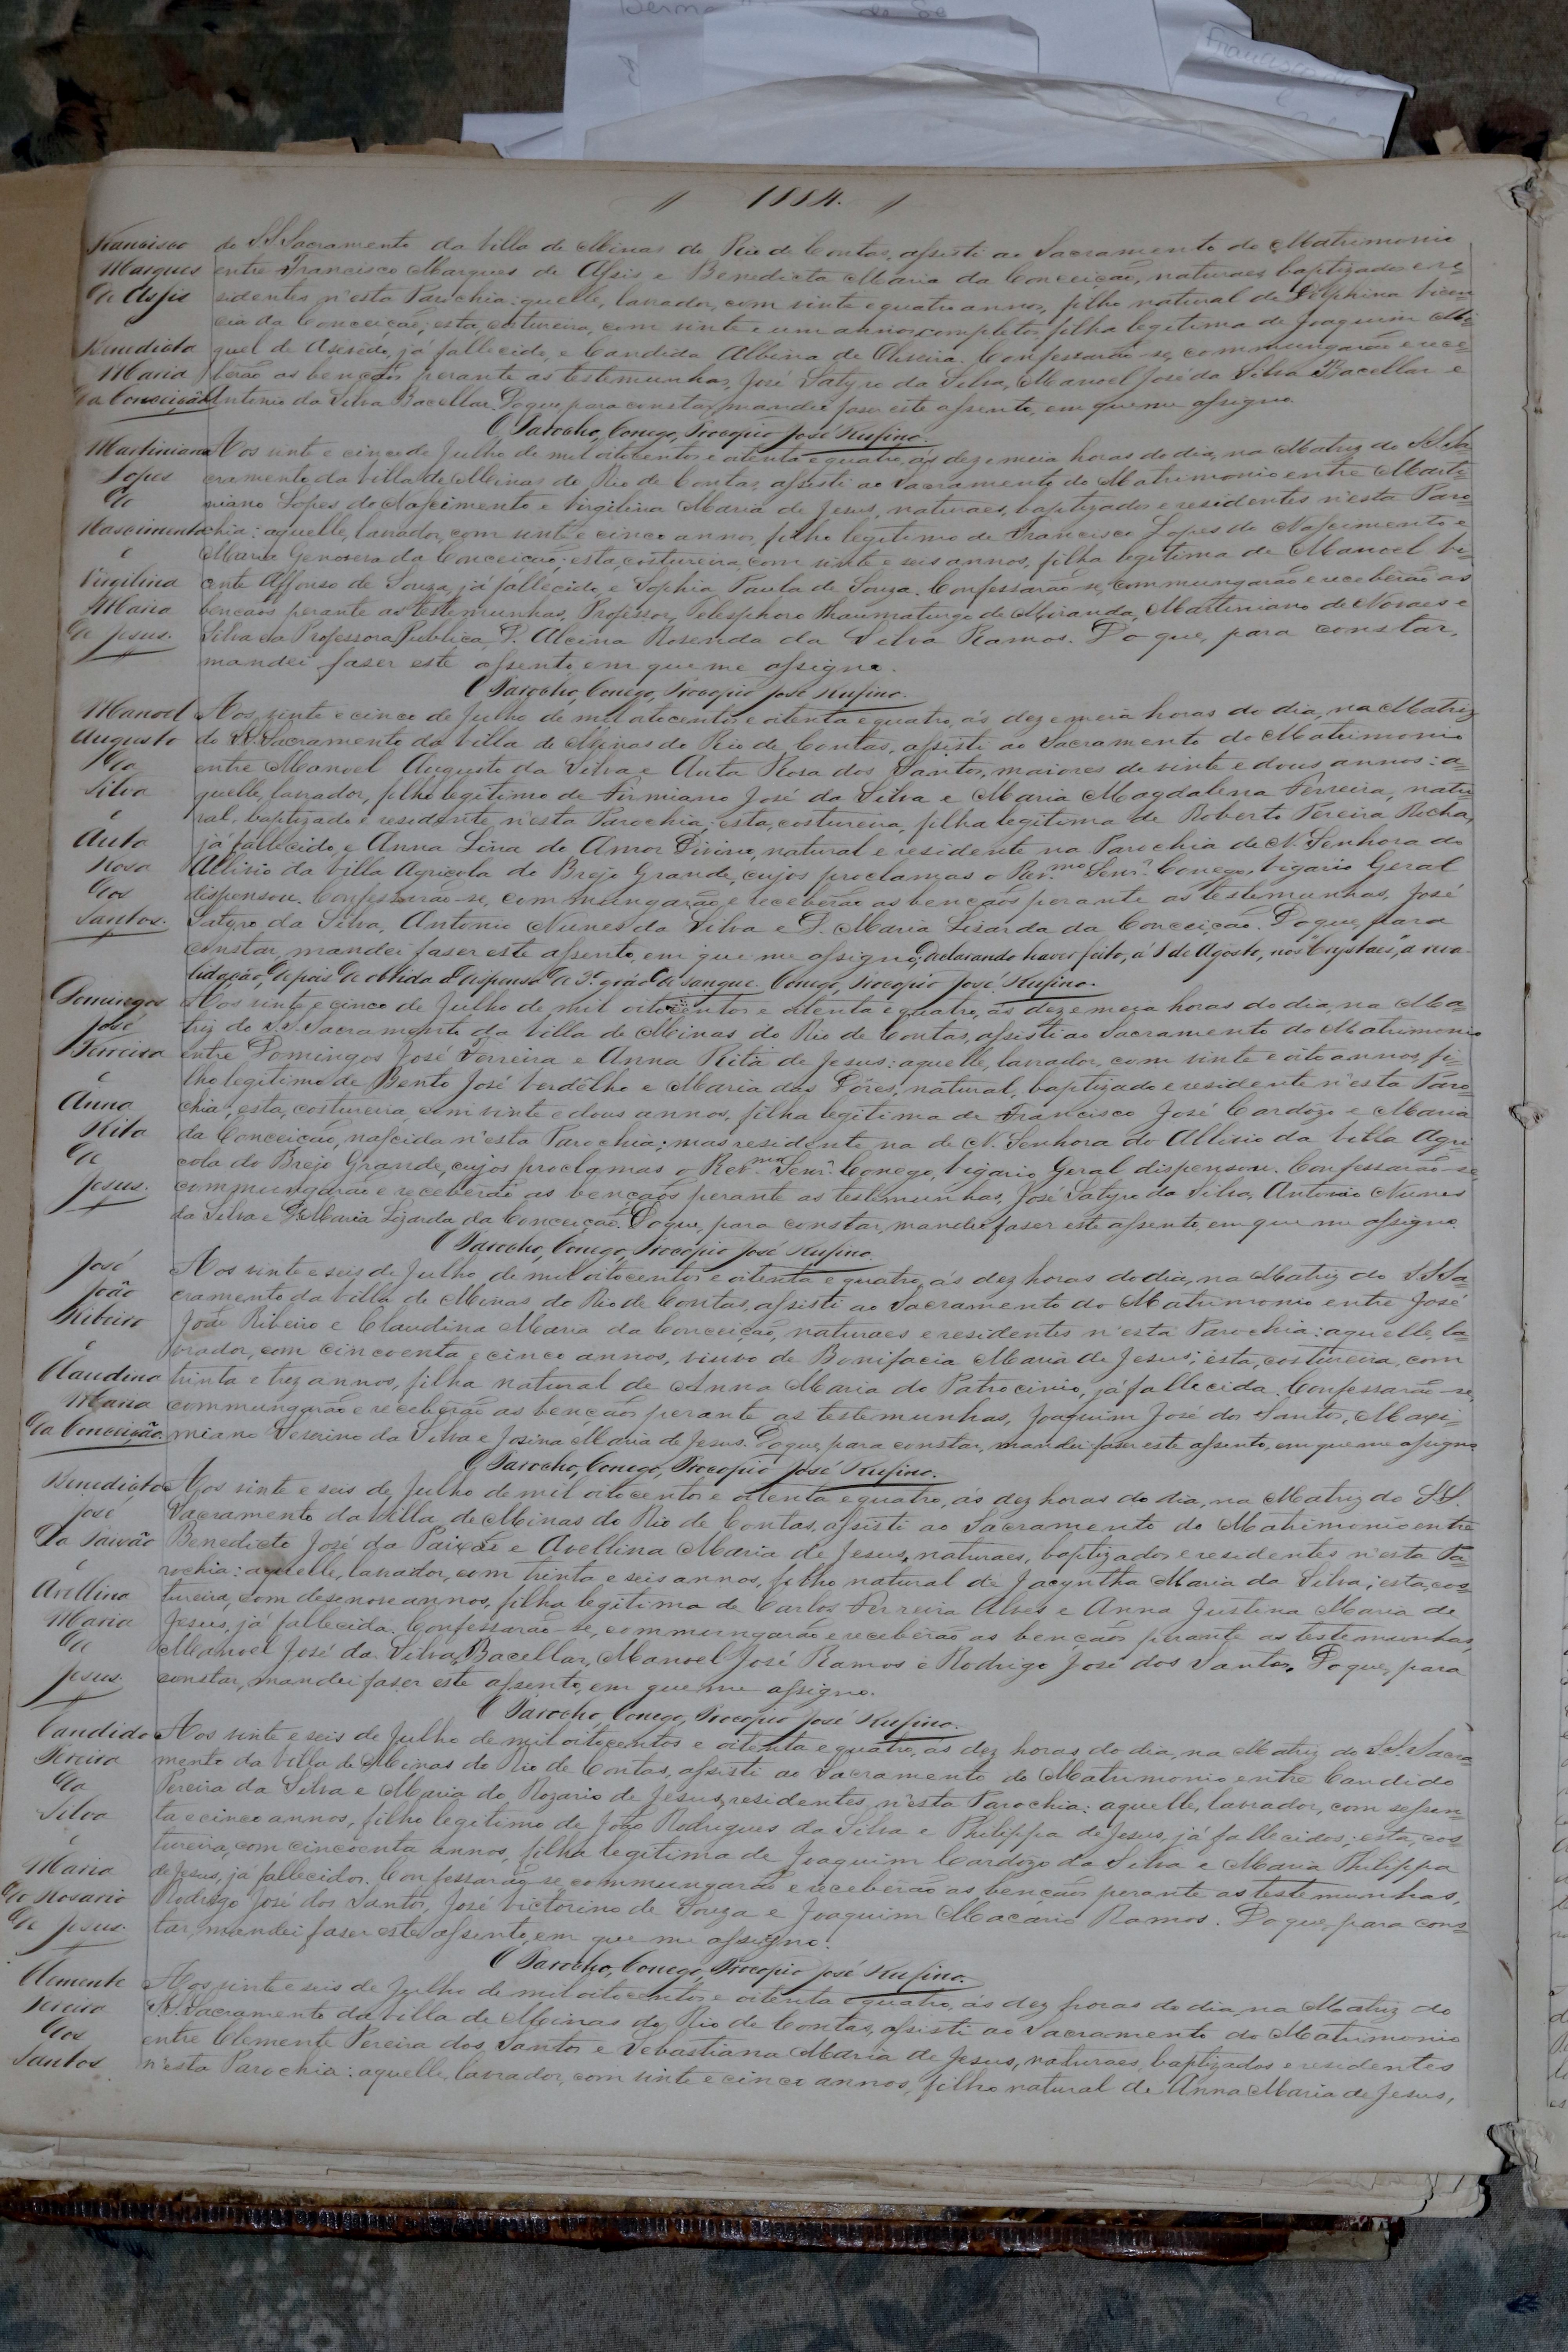 1884.
Francisco de SS. Sacramento da Villa de Minas do Rio de Contas, assisti ao Sacramento do Matrimonio
Marques entre Francisco Marques de Assis e Benedicta Maria da Conceição, naturaes, baptizados e re=
de Assis sidentes n'esta Parochia: quelle, lavrador, com vinte e quatro annos, filho natural de Delphina Vicen
cia da Conceição; esta, costureira, com vinte e um annos completos, filha legitima de Joaquim Mi=
Benedicta guel de Azevêdo, já fallecido, e Candida Albina de Oliveira. Confessarão-se, commungarão e rece=
Maria berão as bençãos perante as testemunhas, José Satyro da Silva, Manoel José da Silva Bacellar e
da Conceição Antonio da Silva Bacellar. Do que, para constar, mandei faser este assento, em que me assigno.
O Parocho, Conego, Procopio José Rufino.
Martiniano Aos vinte e cinco de Julho de mil oitocentos e oitenta e quatro, ás dez e meia horas do dia, na Matriz do SS. Sa=
Lopes cramento da Villa de Minas do Rio de Contas, assisti ao Sacramento do Matrimonio entre Marti=
do niano Lopes do Nascimento e Virgilina Maria de Jesus, naturaes, baptizados e residentes n'esta Paro=
Nascimento chia: aquelle, lavrador, com vinte e cinco annos, filho legitimo de Francisco Lopes do Nascimento e
e Maria Genoveva da Conceição; esta, costureira, com vinte e seis annos, filha legitima de Manoel Vi=
Virgilina cente Affonso de Souza, já fallecido, e Sophia Paula de Souza. Confessarão-se, commungarão e receberão as
Maria bençãos perante as testemunhas, Professor, Telesphoro Thaumaturgo de Miranda, Martiniano de Novaes e
de Jesus. Silva e a Professora Publica, D. Alcina Rosenda da Silva Ramos. Do que, para constar,
mandei faser este assento, em que me assigno.
O Parocho, Conego, Procopio José Rufino.
Manoel Aos vinte e cinco de Julho de mil oitocentos e oitenta e quatro, ás dez e meia horas do dia, na Matriz
Augusto do SS. Sacramento da Villa de Minas do Rio de Contas, assisti ao Sacramento do Matrimonio
da entre Manoel Augusto da Silva e Auta Rosa dos Santos, maiores de vinte e dous annos: a=
Silva quelle, lavrador, filho legitimo de Firmiano José da Silva e Maria Magdalena Ferreira, natu=
e ral, baptizado e residente n'esta Parochia; esta, costureira, filha legitima de Roberto Pereira Rocha,
Auta já fallecido, e Anna Lina do Amor Divino, natural e residente na Parochia de N. Senhora do
Rosa Allivio da Villa Agricola do Brejo Grande, cujos proclamas o Rev.mo Senr. Conego, Vigario Geral
dos dispensou. Confessarão-se, commungarão e receberão as bençãos perante as testemunhas, José
Santos. Satyro da Silva, Antonio Nunes da Silva e D. Maria Lisarda da Conceição. Do que, para
constar, mandei faser este assento, em que me assigno; declarando haver feito, á 1 de Agosto, nos "Crystaes", a reva
lidação, depois de obtida a dispensa de 3º gráo de sangue. Conego, Procopio José Rufino.
Domingos Aos vinte e cinco de Julho de mil oitocentos e oitenta e quatro, ás dez e meya horas do dia, na Ma=
José triz do S.S. Sacramento da Villa de Minas do Rio de Contas, assisti ao Sacramento do Matrimonio
Ferreira entre Domingos José Ferreira e Anna Rita de Jesus: aquelle, lavrador, com vinte e oito annos, fi=
e lho legitimo de Bento José Verdêlho e Maria das Dôres, natural, baptizado e residente n'esta Paro=
Anna chia; esta, costureira com vinte e dous annos, filha legitima de Francisco José Cardôzo e Maria
Rita da Conceição, nascida n'esta Parochia; mas residente na de N. Senhora do Allivio da Villa Agri
de cola do Brejo Grande, cujos proclamas o Rev.mo Senr. Conego, Vigario Geral dispensou. Confessarão-se,
Jesus. commungarão e receberão as bençãos perante as testemunhas, José Satyro da Silva, Antonio Nunes
da Silva e D. Maria Lizarda da Conceição. Do que, para constar, mandei faser este assento, em que me assigno.
O Parocho, Conego, Procopio José Rufino.
José Aos vinte e seis de Julho de mil oitocentos e oitenta e quatro, ás dez horas do dia, na Matriz do SS. Sa=
João cramento da Villa de Minas do Rio de Contas, assisti ao Sacramento do Matrimonio entre José
Ribeiro João Ribeiro e Claudina Maria da Conceição, naturaes e residentes n'esta Parochia: aquelle, la=
e vrador, com cincoenta e cinco annos, viuvo de Bonifacia Maria de Jesus; esta, costureira, com
Claudina trinta e trez annos, filha natural de Anna Maria do Patrocinio, já fallecida. Confessarão-se,
Maria commungarão e receberão as bençãos perante as testemunhas, Joaquim José dos Santos, Maxi=
da Conceição. miano Severino da Silva e Josina Maria de Jesus. Do que, para constar, mandei faser este assento, em que me assigno
O Parocho, Conego, Procopio José Rufino.
Benedicto Aos vinte e seis de Julho de mil oitocentos e oitenta e quatro, ás dez horas do dia, na Matriz do SS.
José Sacramento da Villa de Minas do Rio de Contas, assisti ao Sacramento do Matrimonio entre
da Paixão Benedicto José da Paixão e Avellina Maria de Jesus, naturaes, baptizados e residentes n'esta Pa=
e rochia: aquelle, lavrador, com trinta e seis annos, filho natural de Jacyntha Maria da Silva; esta, cos=
Avellina tureira, com desenove annos, filha legitima de Carlos Ferreira Alves e Anna Justina Maria de
Maria Jesus, já fallecida. Confessarão-se, commungarão e receberão as bençãos perante as testemunhas,
de Manoel José da Silva Bacellar, Manoel José Ramos e Rodrigo José dos Santos. Do que, para
Jesus. constar, mandei faser este assento, em que me assigno.
O Parocho, Conego, Procopio José Rufino.
Candido Aos vinte e seis de Julho de mil oitocentos e oitenta e quatro, ás dez horas do dia, na Matriz do SS. Sacra
Pereira mento da Villa de Minas do Rio de Contas, assisti ao Sacramento do Matrimonio entre Candido
da Pereira da Silva e Maria do Rozario de Jesus, residentes n'esta Parochia: aquelle, lavrador, com sessen=
Silva ta e cinco annos, filho legitimo de João Rodrigues da Silva e Philippa de Jesus, já fallecidos; esta, cos
e tureira, com cincoenta annos, filha legitima de Joaquim Cardozo da Silva e Maria Philippa
Maria de Jesus, já fallecidos. Confessarão-se, commungarão e receberão as bençãos perante as testemunhas,
do Rosario Rodrigo José dos Santos, José Victorino de Souza e Joaquim Macário Ramos. Do que, para cons=
de Jesus. tar, mandei faser este assento, em que me assigno.
O Parocho, Conego, Procopio José Rufino.
Clemente Aos vinte e seis de Julho de mil oitocentos e oitenta e quatro, ás dez horas do dia, na Matriz do
Pereira SS. Sacramento da Villa de Minas do Rio de Contas, assisti ao Sacramento do Matrimonio
dos entre Clemente Pereira dos Santos e Sebastiana Maria de Jesus, naturaes, baptizados e residentes
Santos n'esta Parochia: aquelle, lavrador, com vinte e cinco annos, filho natural de Anna Maria de Jesus,